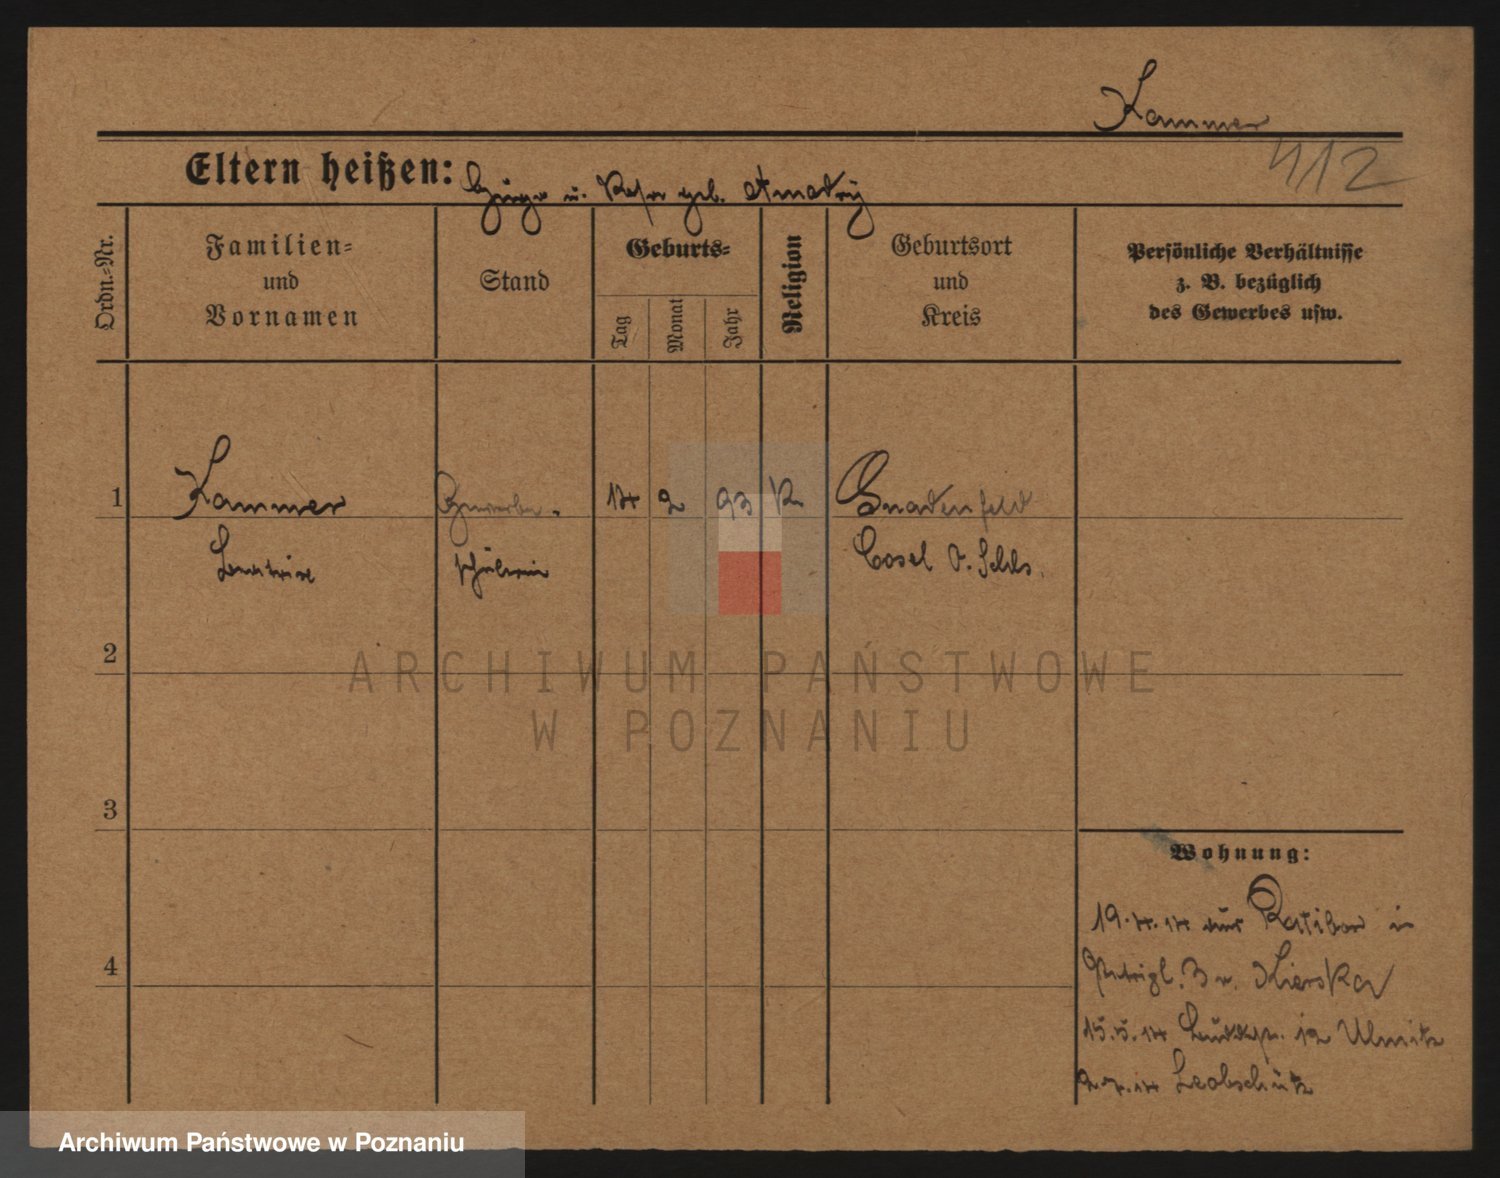 Kammer
412
Eltern heißen: u. geb.
Ordn.=Nr.
Familien=
und
Vornamen
Stand
Geburts=
Tag
Monat
Jahr
Religion
Geburtsort
und
Kreis
Persönliche Verhältnisse
z. B. bezüglich
des Gewerbes usw.
1 Kammer Gewerbe- 14 2 93 K Gnadenfeld
schülerin Cosel O. Schls.
2
3
4
Wohnung:
19.4.14 aus Ratibor in
3 v. Kierska
15.5.14 12 Ulmitz
2.7.14 Leobschütz
ARCHIWUM PAŃSTWOWE
W POZNANIU
Archiwum Państwowe w Poznaniu